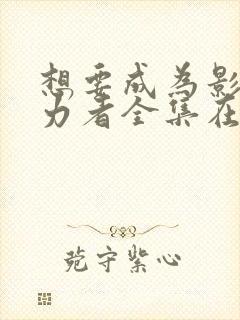 想要成为影
力者全集在
苑守紫心